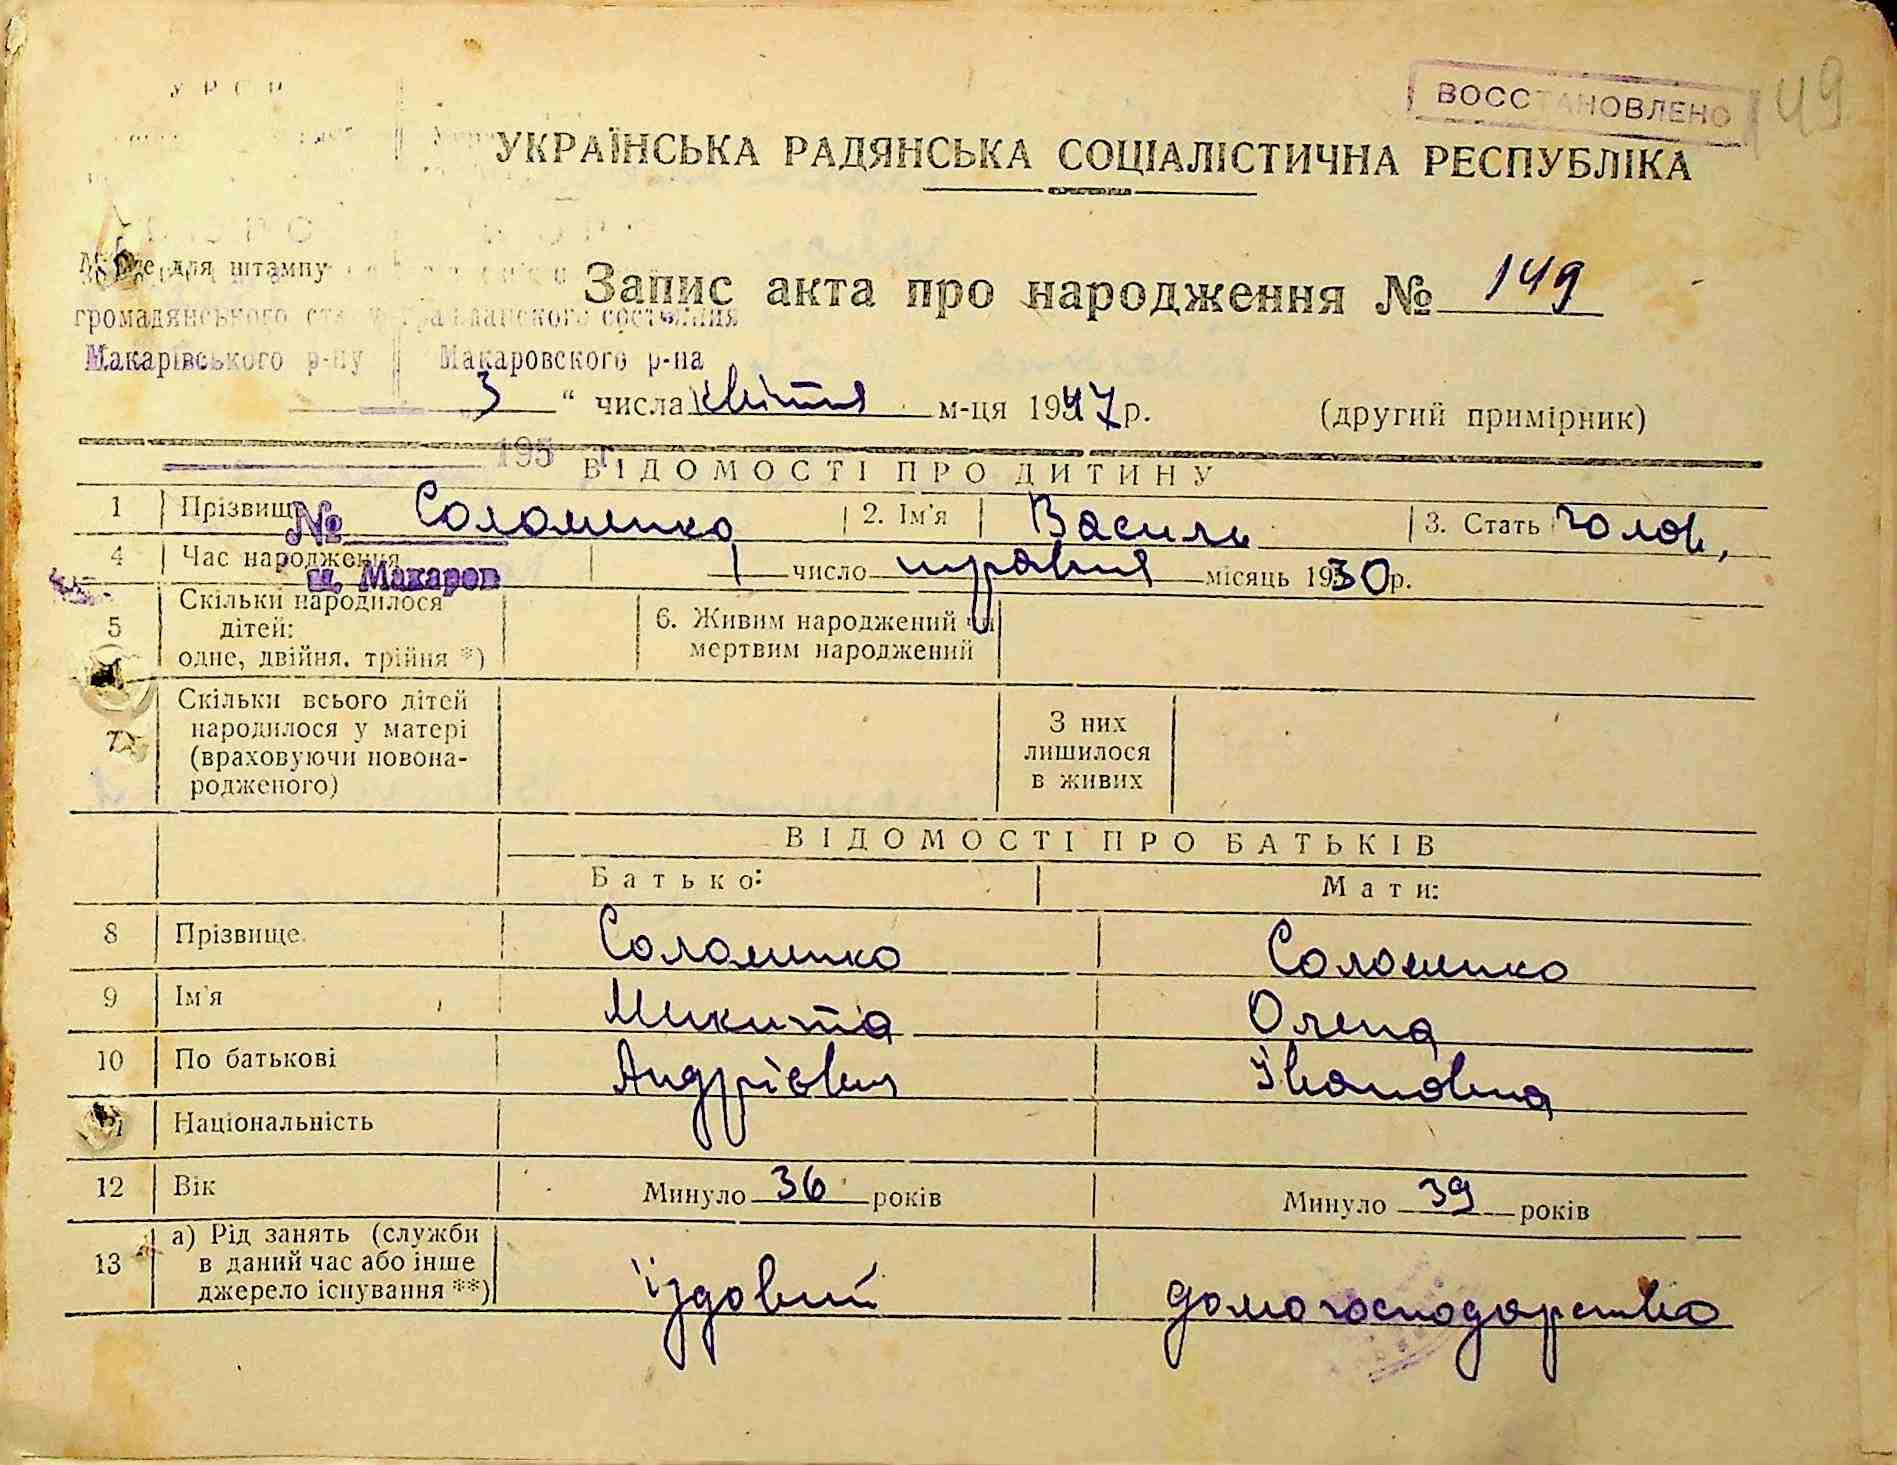 УРСР
ВОССТАНОВЛЕНО
149
УКРАЇНСЬКА РАДЯНСЬКА СОЦІАЛІСТИЧНА РЕСПУБЛІКА
для штампу
Запис акта про народження № 149
громадянського гражданского состояния
Макарівського р-ну Макаровского р-на
3 " числа квітня м-ця 1947 р. (другий примірник)
195
ВІДОМОСТІ ПРО ДИТИНУ
1 Прізвище Соломенко 2. Ім'я Василь 3. Стать чолов.
№
4 Час народження 1 число травня місяць 1930 р.
м. Макаров
5 Скільки народилося дітей: одне, двійня, трійня *) 6. Живим народжений чи мертвим народжений
7 Скільки всього дітей народилося у матері (враховуючи новона-родженого) З них лишилося в живих
ВІДОМОСТІ ПРО БАТЬКІВ
Батько: Мати:
8 Прізвище Соломенко Соломенко
9 Ім'я Микита Олена
10 По батькові Андрієвич Івановна
11 Національність
12 Вік Минуло 36 років Минуло 39 років
13 а) Рід занять (служби в даний час або інше джерело існування **) їздовий домогосподарство